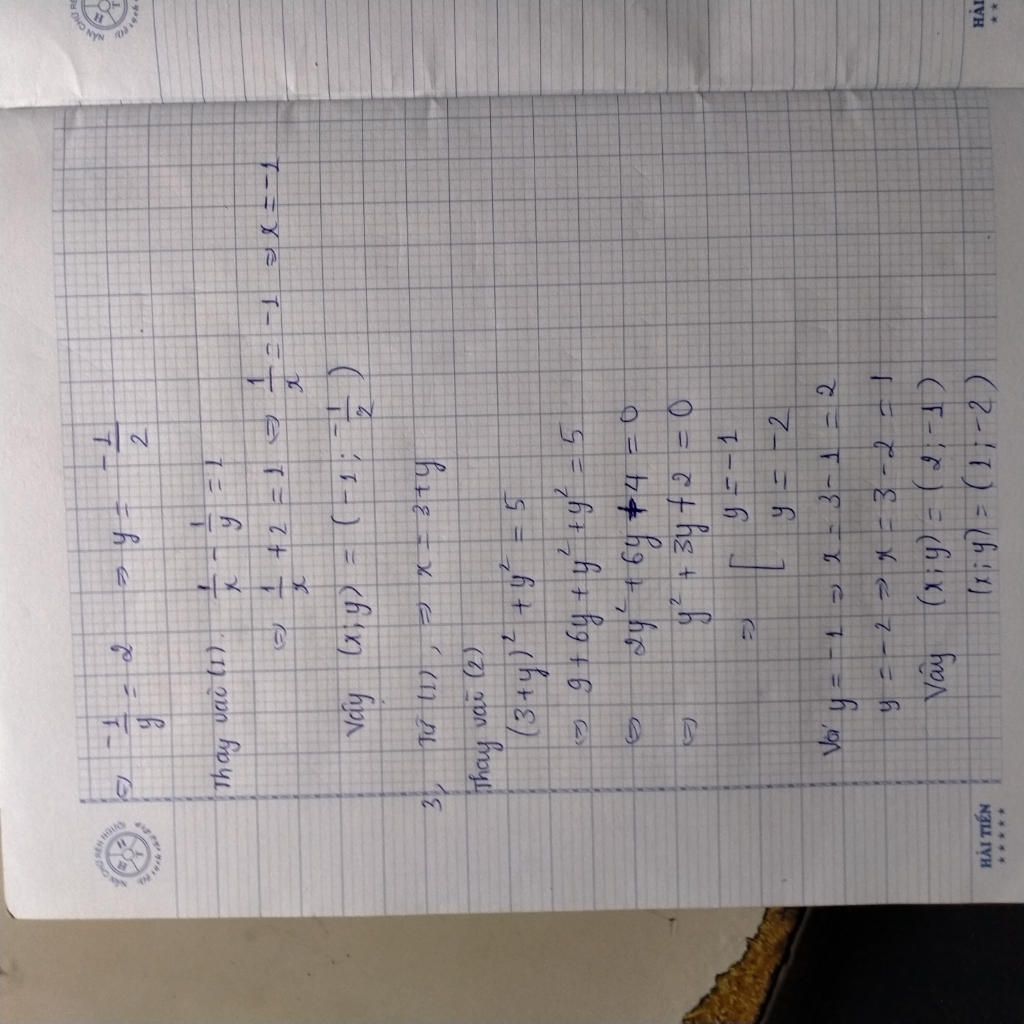 ⇔ -1/y = 2 ⇒ y = -1/2
Thay vào (1). 1/x - 1/y = 1
⇔ 1/x + 2 = 1 ⇔ 1/x = -1 ⇒ x = -1
Vậy (x;y) = (-1; -1/2)
3, Từ (1), ⇒ x = 3+y
Thay vào (2)
(3+y)² + y² = 5
⇔ 9 + 6y + y² + y² = 5
⇔ 2y² + 6y + 4 = 0
⇔ y² + 3y + 2 = 0
⇒ [ y = -1
y = -2
Với y = -1 ⇒ x = 3 - 1 = 2
y = -2 ⇒ x = 3 - 2 = 1
Vậy (x;y) = (2; -1)
(x;y) = (1; -2)
HẢI TIẾN
HẢI